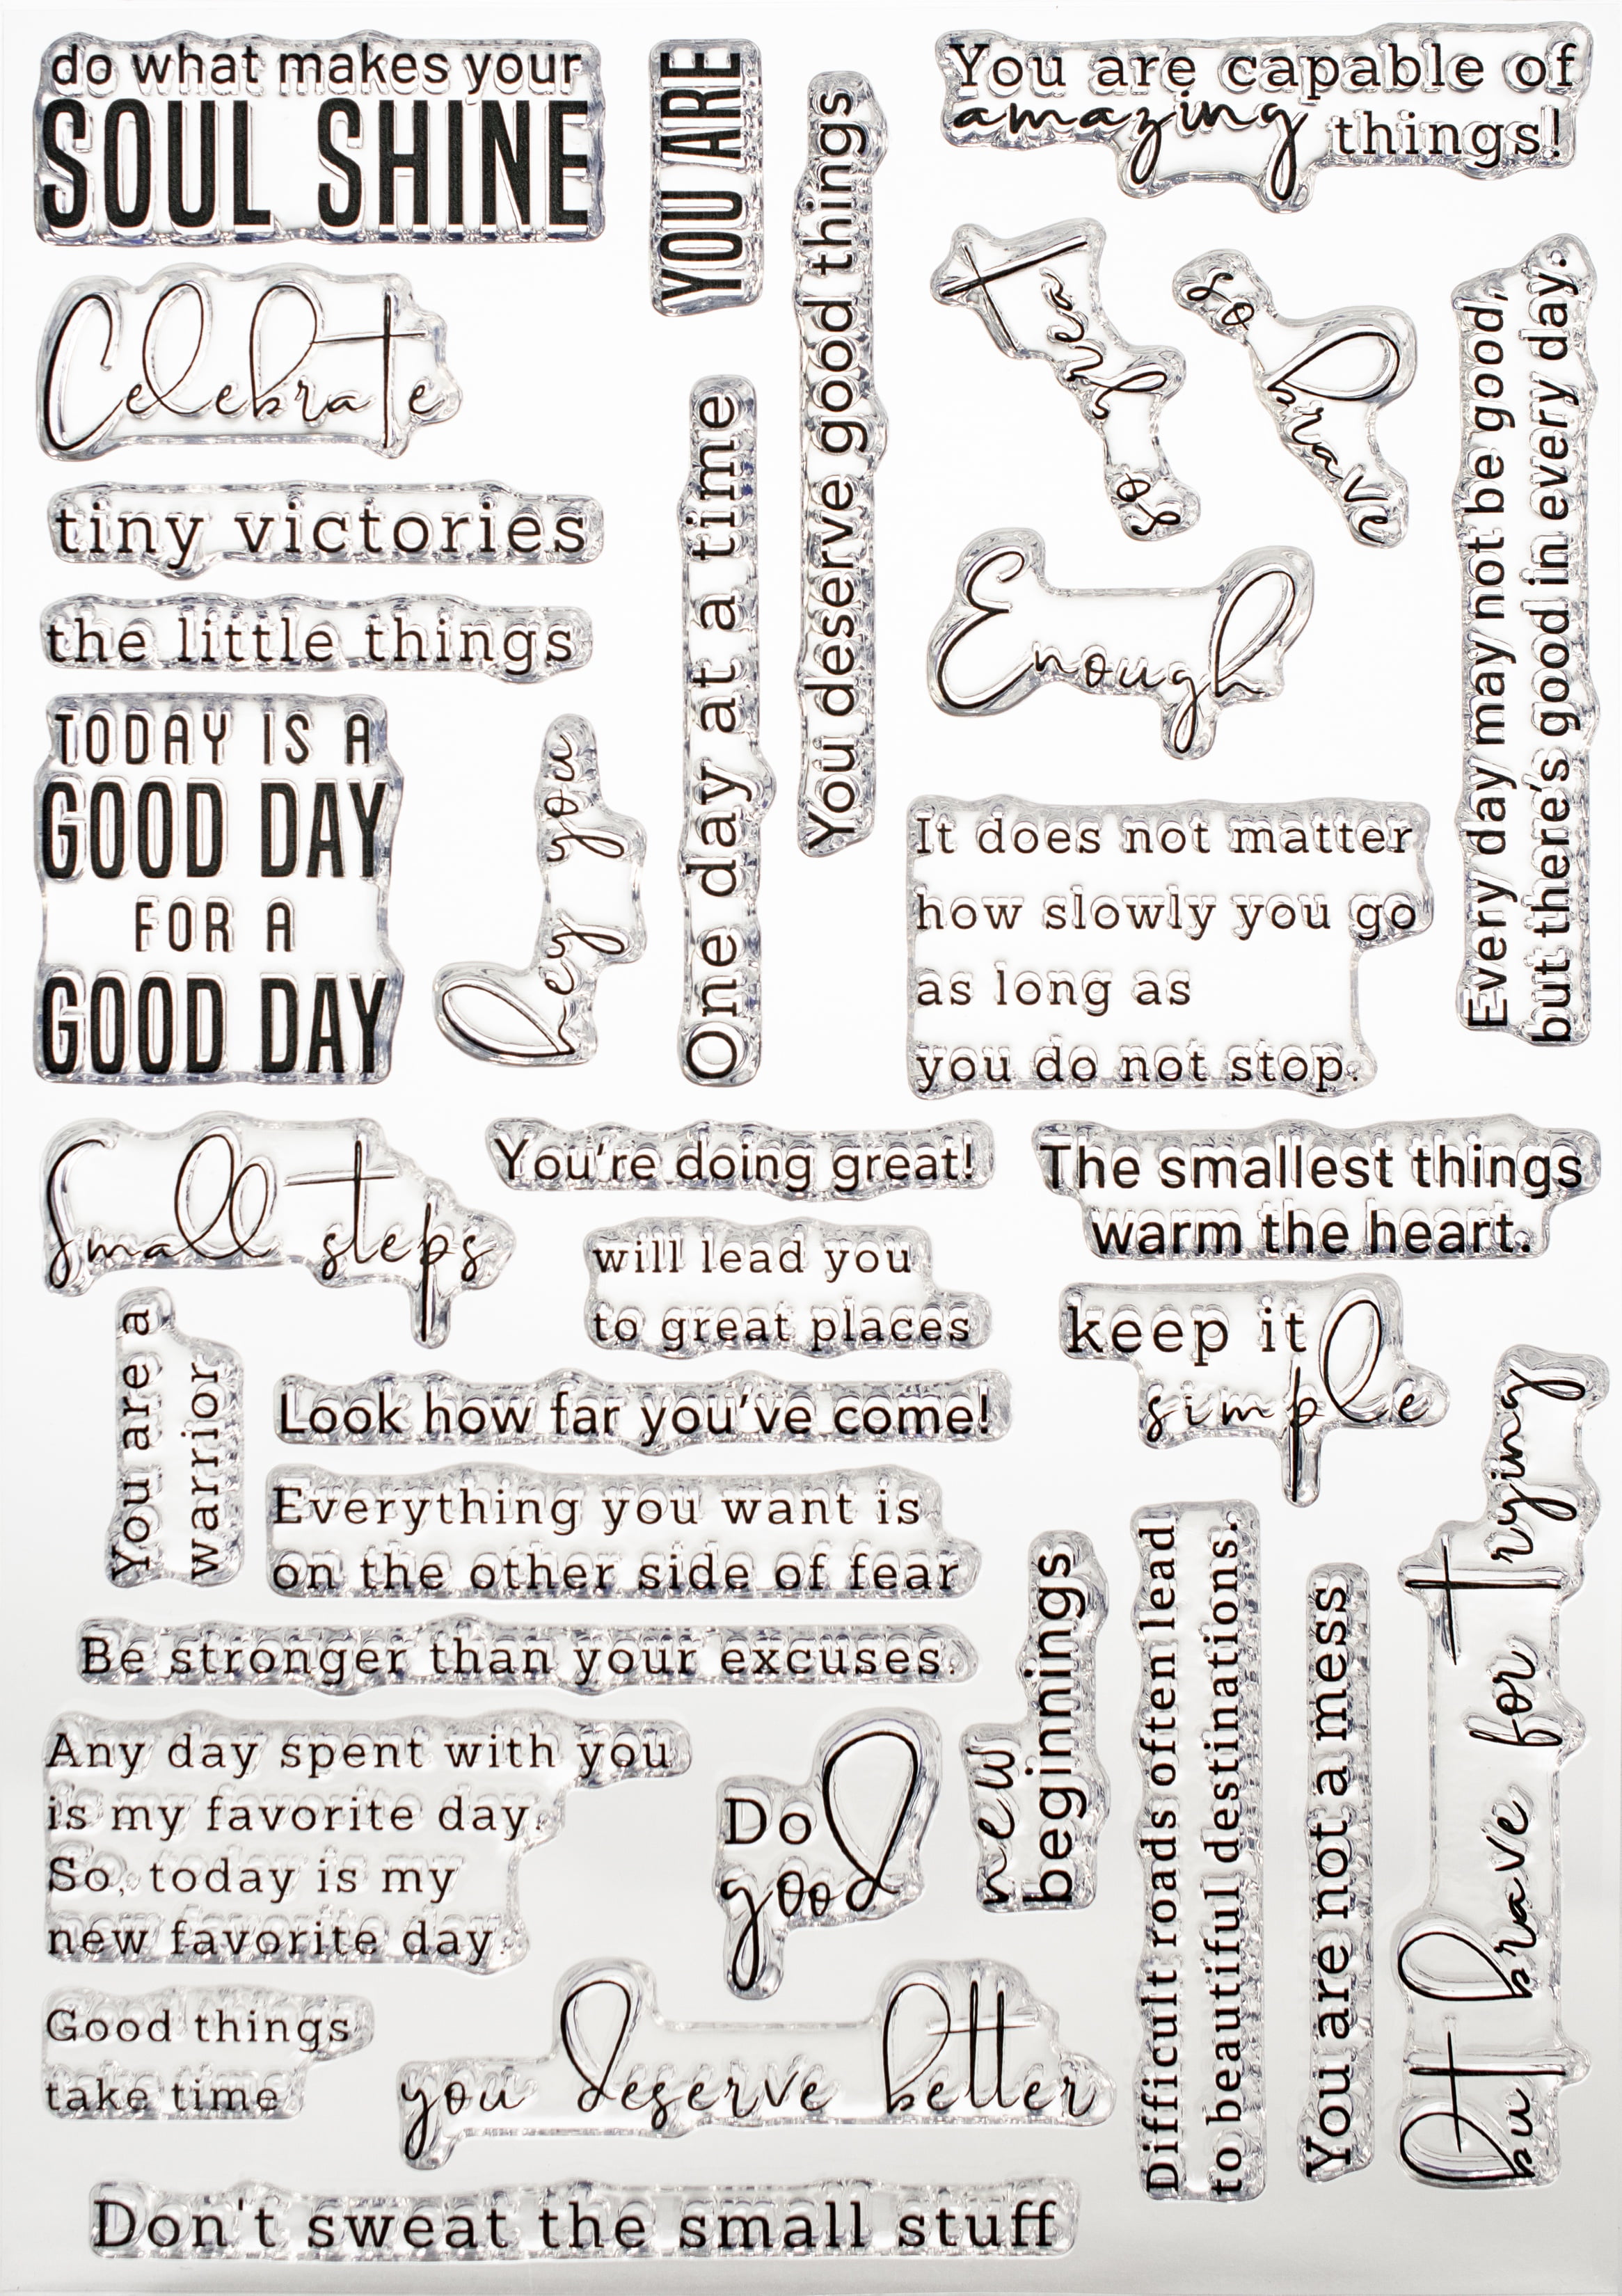 do what makes your
SOUL SHINE
YOU ARE
You deserve good things
You are capable of
amazing things!
Celebrate
tiny victories
the little things
One day at a time
so
brave
Enough
Every day may not be good,
but there's good in every day.
TODAY IS A
GOOD DAY
FOR A
GOOD DAY
hey you
It does not matter
how slowly you go
as long as
you do not stop.
Small steps
You're doing great!
The smallest things
warm the heart.
will lead you
to great places
keep it
simple
You are a
warrior
Look how far you've come!
Everything you want is
on the other side of fear
Be stronger than your excuses.
new
beginnings
Difficult roads often lead
to beautiful destinations.
You are not a mess
but brave for trying
Any day spent with you
is my favorite day.
So, today is my
new favorite day.
Do
good
Good things
take time
you deserve better
Don't sweat the small stuff